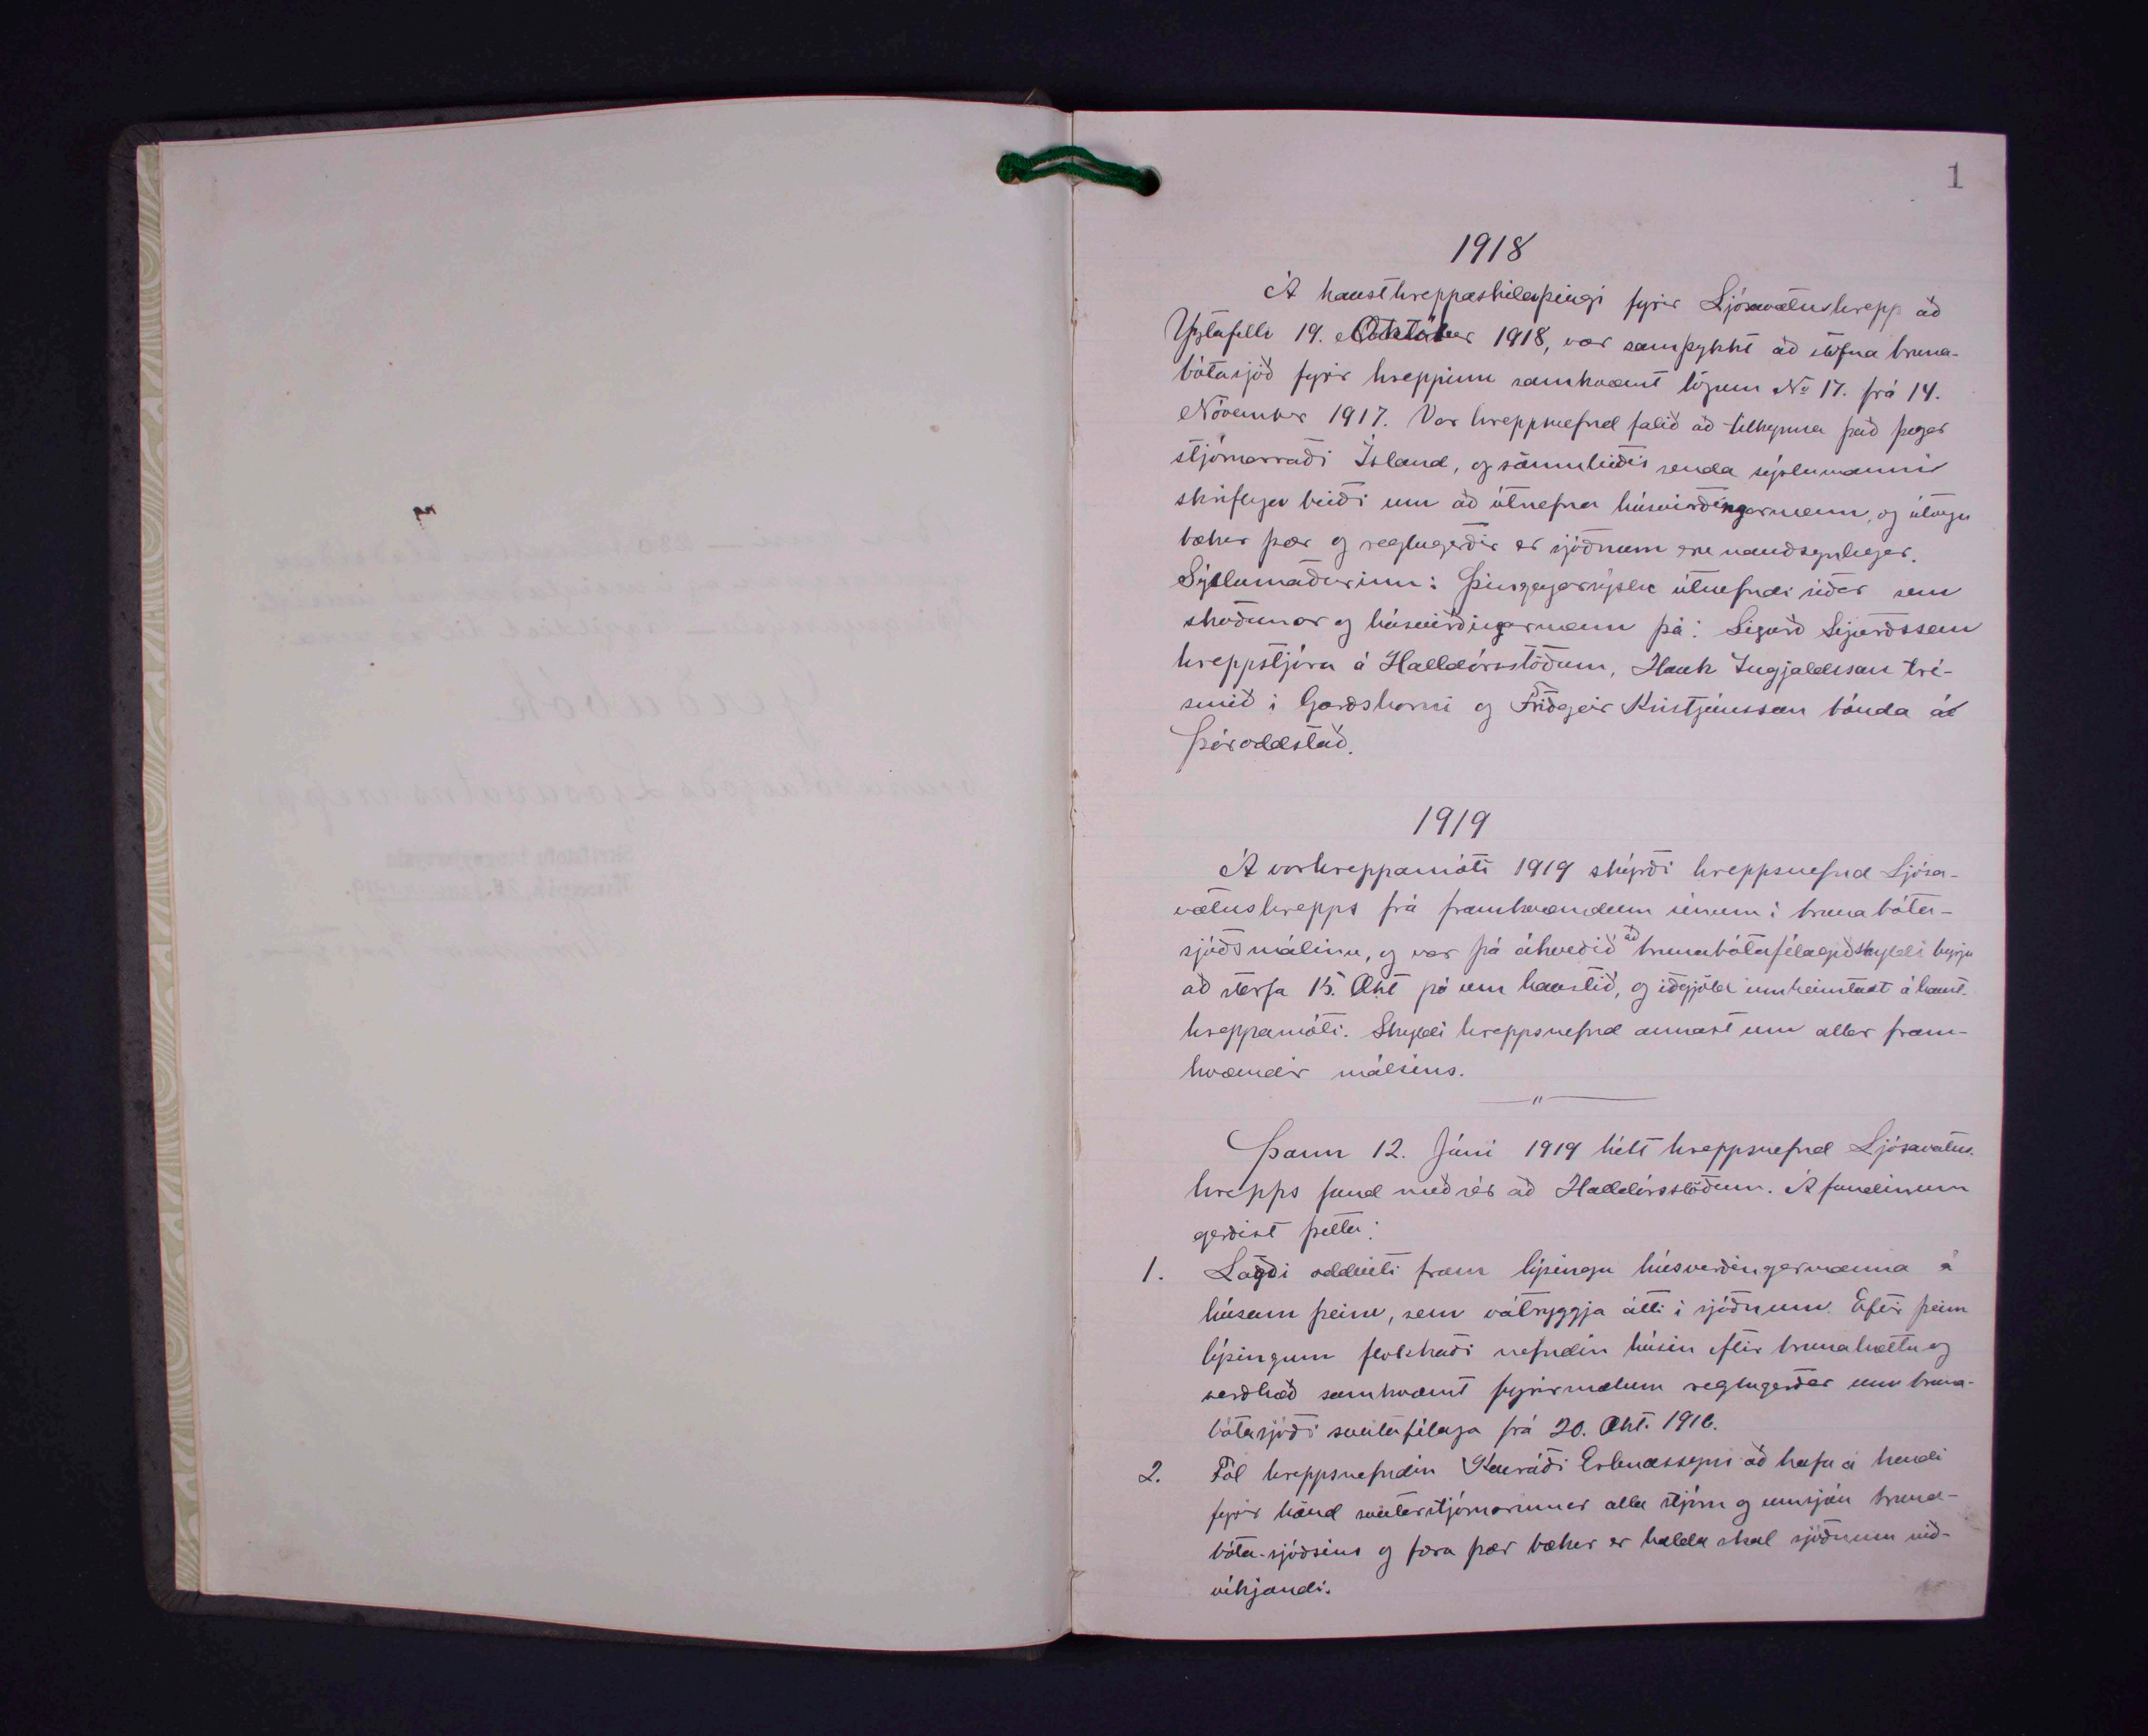 1
1918
Á hausthreppaskilaþingi fyrir Ljósavatnshrepp að
Ystafelli 19. Október 1918, var samþykkt að stofna bruna-
bótasjóð fyrir hreppinn samkvæmt lögum No 17. frá 14.
Nóvember 1917. Var hreppsnefnd falið að tilkynna það þegar
stjórnarráði Ísland, og sömuleiðis senda sýslumanni
skriflega beiðni um að útnefna húsvirðingarmenn, og útvega
bækur þær og reglugerðir er sjóðnum eru nauðsynlegar.
Sýslumaðurinn í Þingeyjarsýslu útnefndi síðar sem
skoðunar og húsvirðingarmenn þá: Sigurð Sigurðsson
hreppstjóra á Halldórsstöðum, Hauk Ingjaldsson tré-
smið í Garðshorni og Friðgeir Kristjánsson bónda á
Þóroddstað.
1919
Á vorhreppamóti 1919 skýrði hreppsnefnd Ljósa-
vatnshrepps frá framkvæmdum sínum í brunabóta-
sjóðsmálinu, og var þá ákveðið að brunabótafélagið skyldi byrja
að starfa 15. Okt þá um haustið, og iðgjöld innheimtast á haust-
hreppamóti. Skyldi hreppsnefnd annast um allar fram-
kvæmdir málsins.
—〃—
Þann 12. Júní 1919 hélt hreppsnefnd Ljósavatns-
hrepps fund með sér að Halldórsstöðum. Á fundinum
gerðist þetta:
1. Lagði oddviti fram lýsingu húsverðingarmanna á
húsum þeim, sem vátryggja átti í sjóðnum. Eftir þeim
lýsingum flokkaði nefndin húsin eftir brunahættu og
verðhæð samkvæmt fyrirmælum reglugerðar um bruna-
bótasjóði sveitafélaga frá 20. Okt. 1916.
2. Fól hreppsnefndin Konráði Erlendssyni að hafa á hendi
fyrir hönd sveitarstjórnarinnar alla stjórn og umsjón bruna-
bóta-sjóðsins og færa þær bækur er halda skal sjóðnum við-
víkjandi.